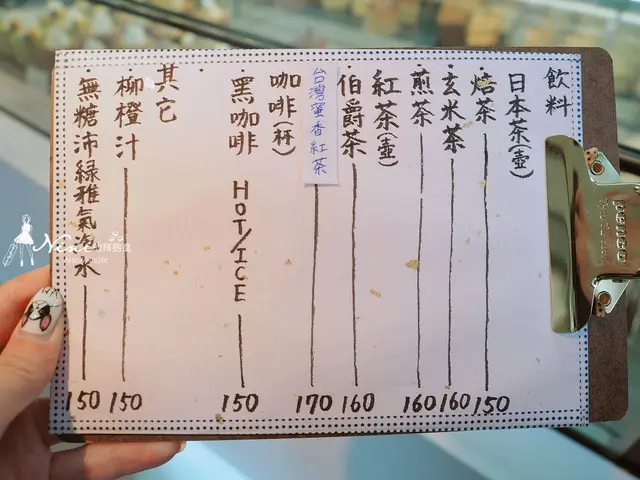 飲料
日本茶(壺)
焙茶 150
玄米茶 160
煎茶 160
紅茶(壺)
伯爵茶 160
台灣蜜香紅茶 170
咖啡(杯)
黑咖啡 HOT/ICE 150
其它
柳橙汁 150
無糖沛綠雅氣泡水 150
penco